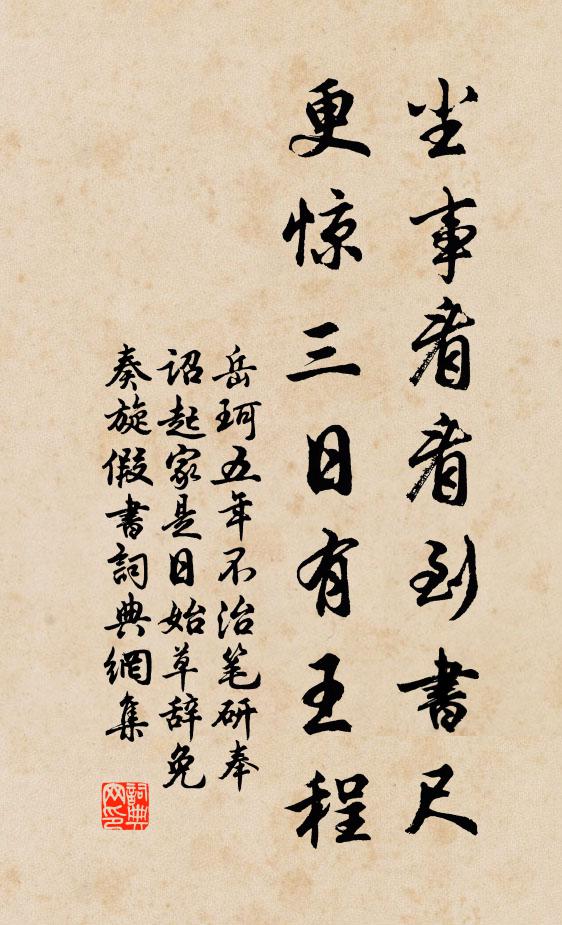 尘事看看到书尺
更惊三日有王程
岳珂五年不治笔研奉
诏起家是日始草辞免
奏旋假書詞典網集
詞典网印